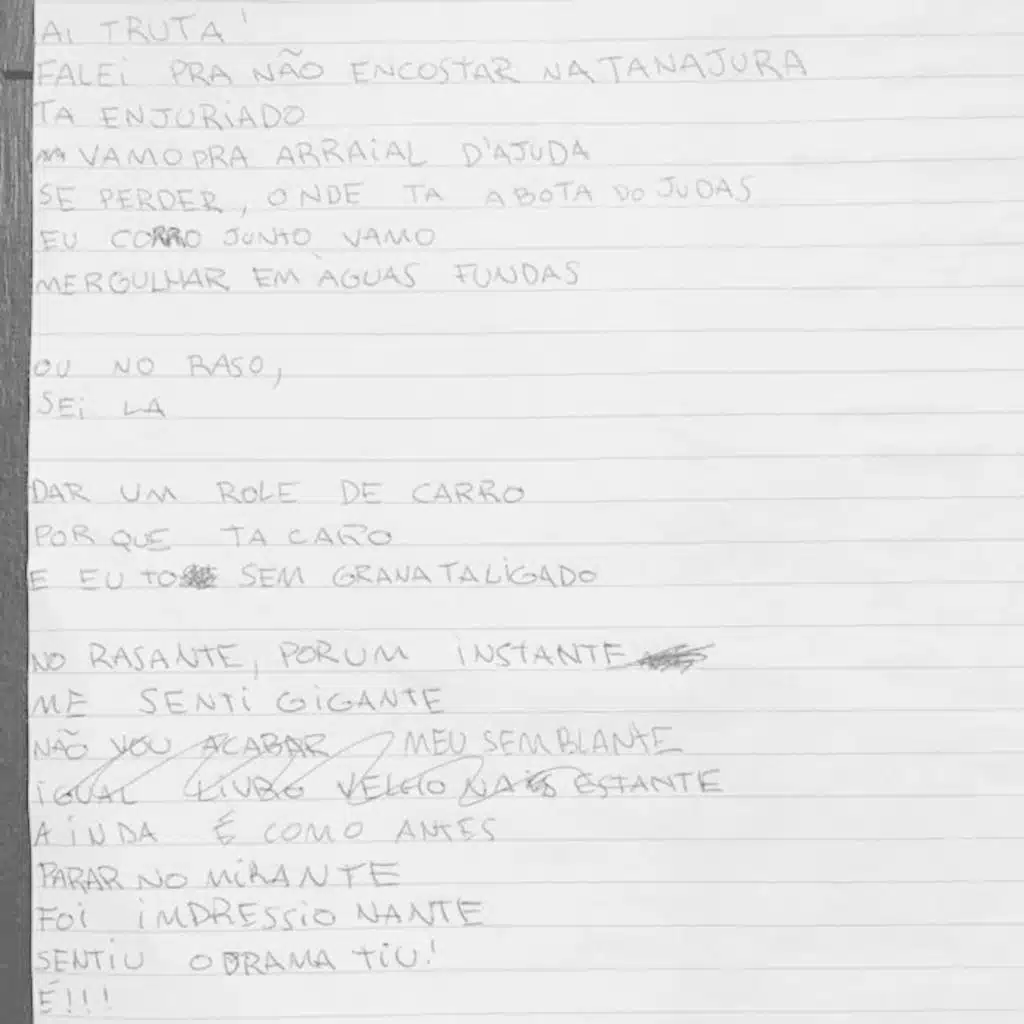 AI TRUTA!
FALEI PRA NÃO ENCOSTAR NA TANAJURA
TA ENJURIADO
VAMO PRA ARRAIAL D'AJUDA
SE PERDER, ONDE TA A BOTA DO JUDAS
EU CORRO JUNTO VAMO
MERGULHAR EM ÀGUAS FUNDAS
OU NO RASO,
SEI LA
DAR UM ROLE DE CARRO
POR QUE TA CARO
E EU TO SEM GRANA TA LIGADO
NO RASANTE, POR UM INSTANTE
ME SENTI GIGANTE
NÃO VOU ACABAR MEU SEMBLANTE
IGUAL LIVRO VELHO NA ESTANTE
AINDA É COMO ANTES
PARAR NO MIRANTE
FOI IMPRESSIONANTE
SENTIU O DRAMA TIU!
É!!!